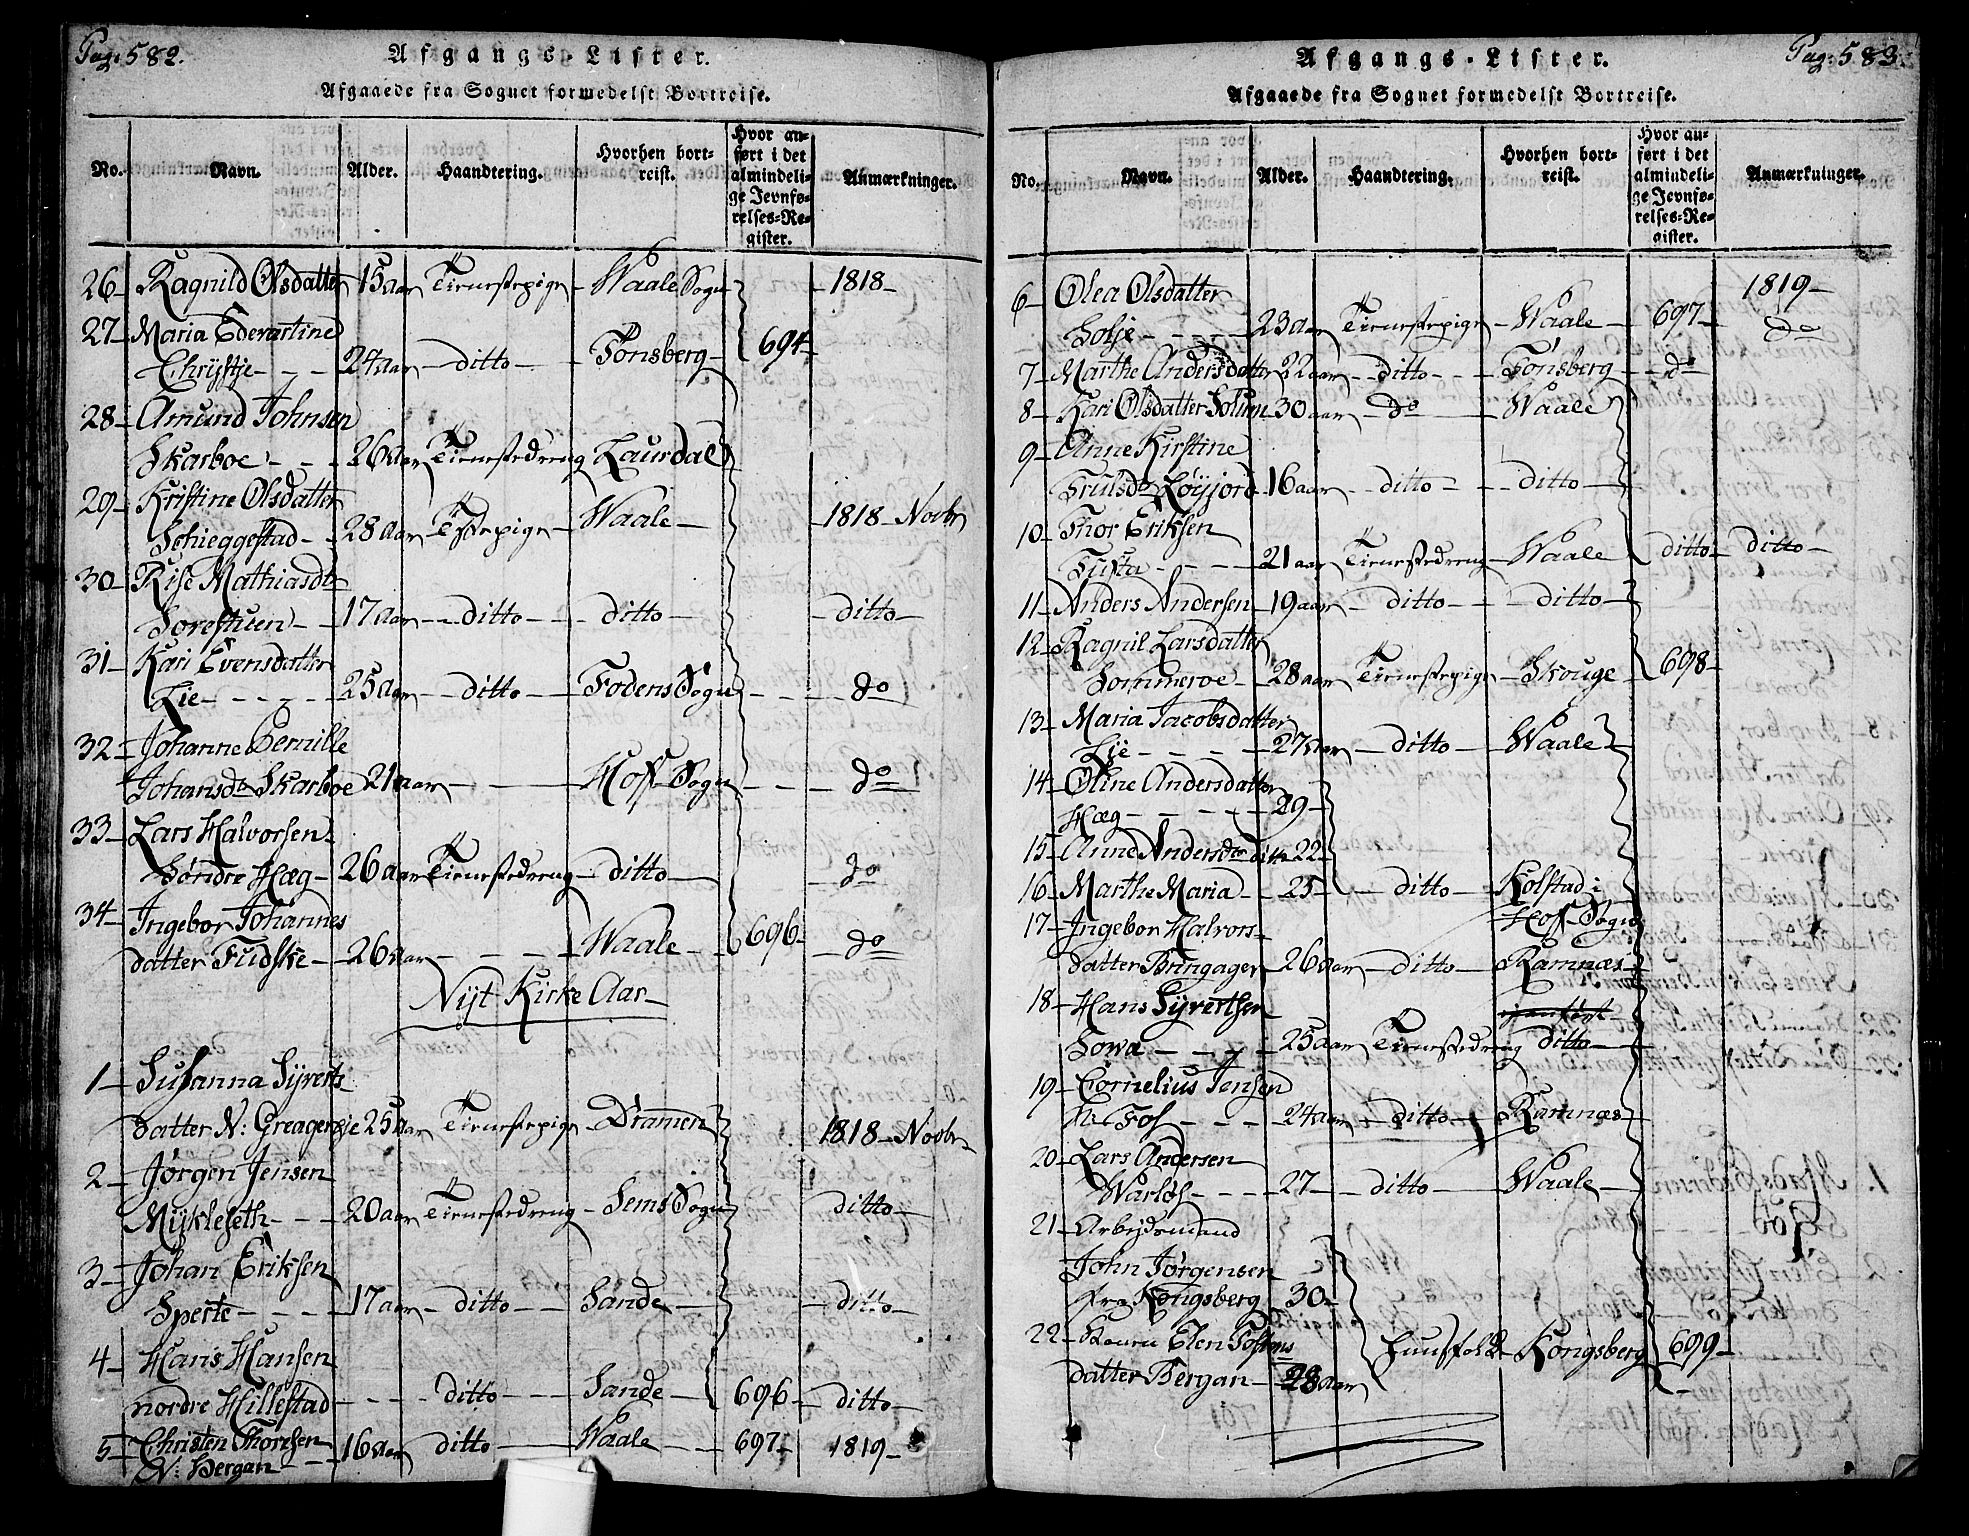 Pag: 582.
Afgangs-Lister.
Afgaaede fra Sognet formedelst Bortreise.
No.
Navn.
Alder.
Haandtering.
Hvorhen bort-
reist.
Hvor an-
ført i det
almindeli-
ge Jevnfø-
relses-Re-
gister.
Anmærkninger.
26- Ragnild Olsdatter 15 aar Tienestepige Waale Sogn 1818-
27- Maria Edevartine
Chrystje - - - 24 aar - ditto - Tønsberg - 694-
28- Amund Johnsen
Skarboe - - - 26 aar Tienestedreng Laurdal
29- Kristine Olsdatter
Schieggestad - 28 aar Tstepige Waale - 1818 - Novbr
30- Rise Mathiasdtr
Sorestuen - 17 aar - ditto - ditto - ditto -
31- Kari Evensdatter
Lie - - - - 25 aar - ditto - Fodens Sogn - - do
32- Johanne Pernille
Johansdtr Skarboe 21 aar - - Hofs Sogn - - do
33- Lars Halvorsen
Søndre Hæg - 26 aar Tienestedreng - ditto - do
34- Ingebor Johannes
datter Fudske - 26 aar - - - Waale - 696- - do
Nyt Kirke Aar -
1- Susanna Syverts
datter N: Greagerøje 25 aar Tienestepige - Dramen 1818 - Novbr
2- Jørgen Jensen
Mykleseth - - - 20 aar Tienestedreng - Sems Sogn ditto -
3- Johan Eriksen
Sperte - - - - 17 aar - ditto - Sande - - ditto -
4- Hans Hansen
nordre Hillestad - - - ditto - - Sande - 696 - ditto -
5- Christen Thorsen
N: Bergan - - 16 aar ditto - Waale - - 697- 1819 -
Pag: 583.
Afgangs-Lister.
Afgaaede fra Sognet formedelst Bortreise.
No.
Navn.
Alder.
Haandtering.
Hvorhen bort-
reist.
Hvor an-
ført i det
almindeli-
ge Jevnfø-
relses-Re-
gister.
Anmærkninger.
6- Olea Olsdatter 1819-
Solje - - - - 23 aar Tienestepige - Waale - 697- do
7- Marthe Andersdatter 22 aar - ditto - Tønsberg - do
8- Kari Olsdatter Solum 30 aar - do - Waale
9- Anne Kirstine
Trulsdtr Løyjord - 16 aar - ditto - - ditto -
10- Thor Eriksen
Fusta - - - 21 aar Tienestedreng - Waale ditto - ditto -
11- Anders Andersen - 19 aar - ditto - - ditto -
12- Ragnil Larsdatter
Sommeroe - 28 aar Tienestepige - Skouge - 698-
13- Maria Jacobsdatter
Lie - - - - 27 aar - ditto - Waale
14- Oline Andersdatter
Hæg - - - - 29-
15- Anne Andersdtr ditto 22-
16- Marthe Maria - 25 - - ditto - Kolstad i
Hofs Sogn
17- Ingebor Halvors-
datter Bringager - 26 aar - ditto - Ramnæs
18- Hans Syvertsen
Sowa - - - 25 aar Tienestedreng ditto -
19- Cornelius Jensen
N: Fos - - - 24 aar - ditto - Ramnæs
20- Lars Andersen
Warløs - - - - 27 - - ditto - Waale -
21- Arbejdsmand
John Jørgensen
fra Kongsberg 30-
22- Konen Elen Tostens
datter Bergan - 28 aar Kongsberg 699-